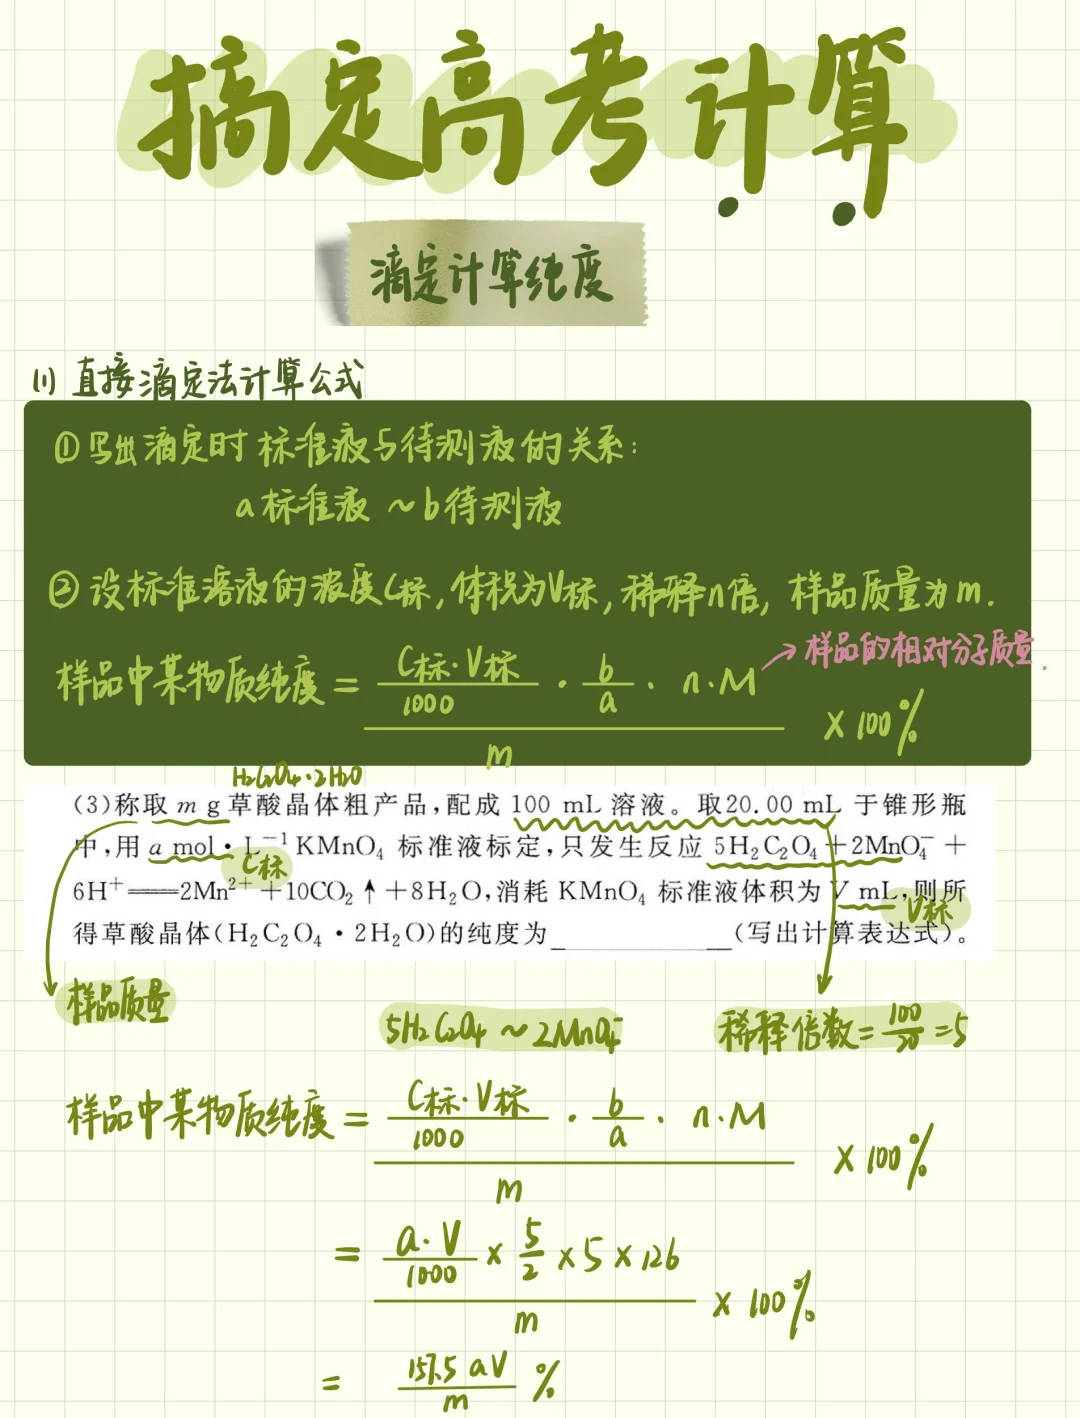 搞定高考计算
滴定计算纯度
(1) 直接滴定法计算公式
① 写出滴定时标准液与待测液的关系:
a标准液 ~ b待测液
② 设标准溶液的浓度C标, 体积为V标, 稀释n倍, 样品质量为m.
样品中某物质纯度 = (C标·V标/1000 · b/a · n·M)/m × 100%
→ 样品的相对分子质量.
H₂C₂O₄·2H₂O
(3)称取 m g 草酸晶体粗产品,配成 100 mL 溶液。取20.00 mL 于锥形瓶
中,用 a mol·L⁻¹ KMnO₄ 标准液标定,只发生反应 5H₂C₂O₄+2MnO₄⁻+
C标
6H⁺═══2Mn²⁺+10CO₂↑+8H₂O,消耗 KMnO₄ 标准液体积为 V mL,则所
V标
得草酸晶体(H₂C₂O₄·2H₂O)的纯度为__________(写出计算表达式)。
样品质量
5H₂C₂O₄ ~ 2MnO₄⁻
稀释倍数=100/20=5
样品中某物质纯度 = (C标·V标/1000 · b/a · n·M)/m × 100%
= (a·V/1000 × 5/2 × 5 × 126)/m × 100%
= 157.5 aV/m %